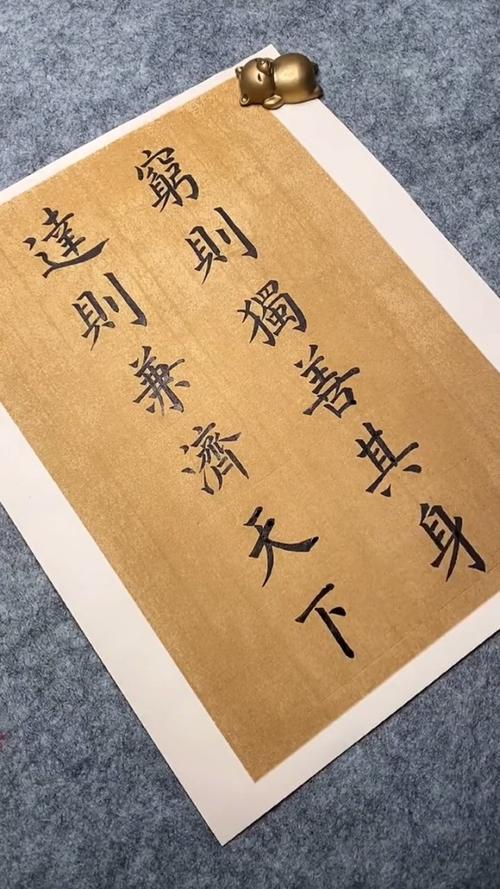 窮則獨善其身
達則兼濟天下